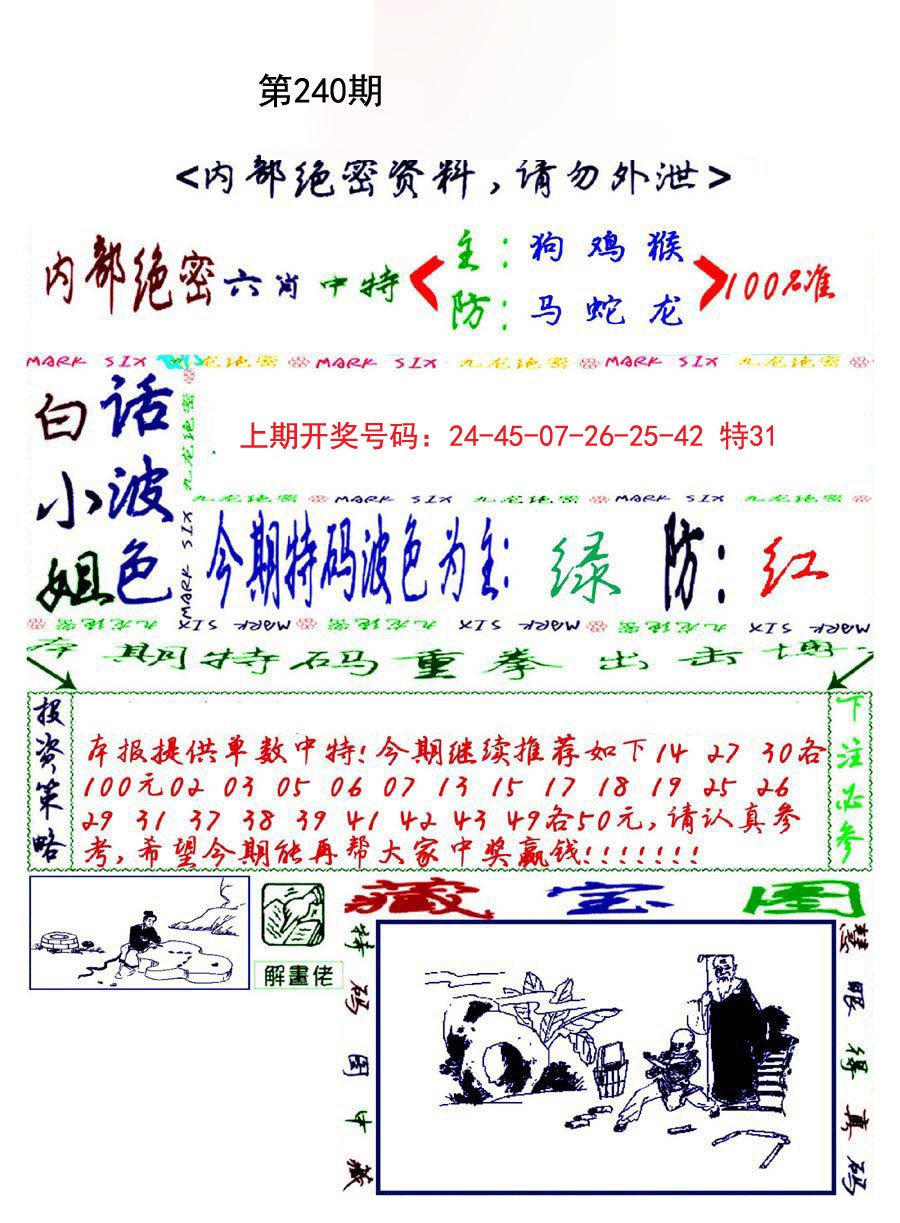 第240期
<内部绝密资料,请勿外泄>
内部绝密六肖中特
主:狗 鸡 猴
防:马 蛇 龙
100%准
MARK SIX 九龙绝密 MARK SIX 九龙绝密 MARK SIX 九龙绝密
白话小波姐色
九龙绝密
MARK SIX
上期开奖号码：24-45-07-26-25-42 特31
九龙绝密 MARK SIX 九龙绝密 MARK SIX 九龙绝密
今期特码波色为主:绿 防:红
九龙绝密 MARK SIX 九龙绝密 MARK SIX 九龙绝密 MARK SIX
本期特码重拳出击博
投资策略
本报提供单数中特!今期继续推荐如下14 27 30各
100元02 03 05 06 07 13 15 17 18 19 25 26
29 31 37 38 39 41 42 43 49各50元,请认真参
考,希望今期能再帮大家中奖赢钱!!!!!!!
下注必参
解畫佬
藏宝图
特码图中藏
慧眼得真码